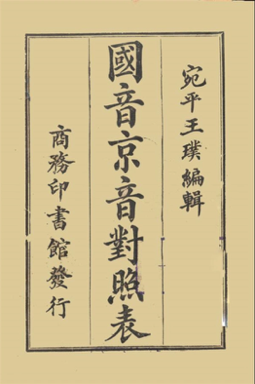 宛平王璞編輯
國音京音對照表
商務印書館發行